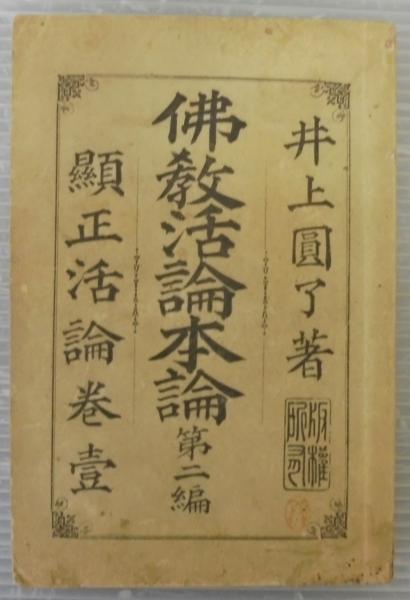 井上圓了著
版權所有
佛教活論本論第二編
顯正活論卷壹